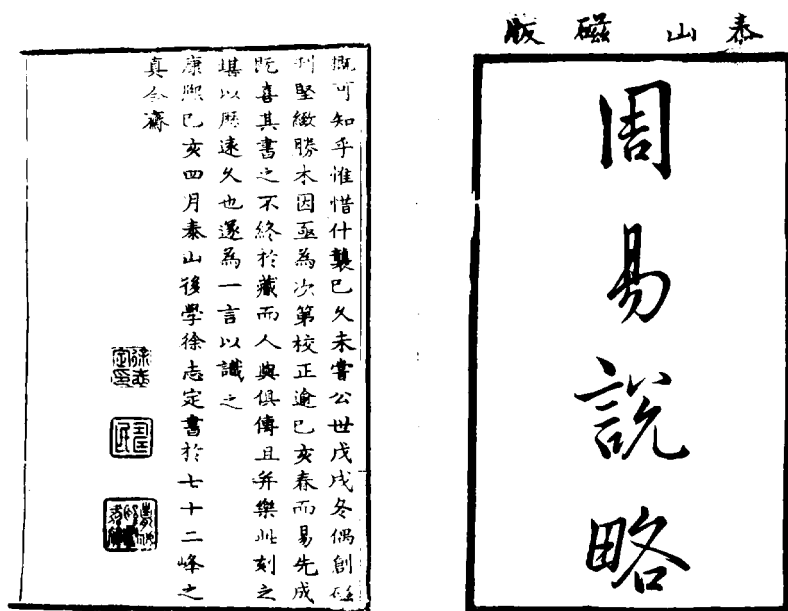 泰山磁版
周易說略
概可知乎惟惜什襲已久未嘗公世戊戌冬偶創磁
刊堅緻勝木因亟為次第校正逾己亥春而易先成
既喜其書之不終於藏而人與俱傳且并樂此刻之
堪以歷遠久也遂為一言以識之
康熙己亥四月泰山後學徐志定書於七十二峰之
真合齋